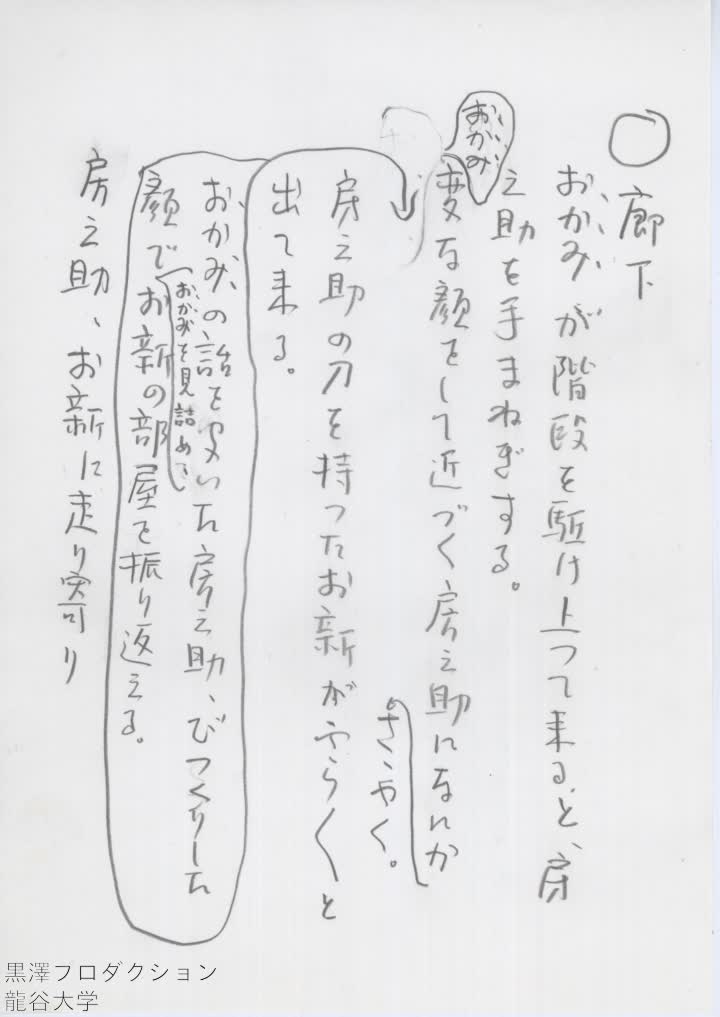 ○廊下
おかみが階段を駈け上って来ると、房
之助を手まねぎする。
おかみ
変な顔をして近づく房之助になにか
さゝやく。
房之助の刀を持ったお新がふら〱と
出て来る。
おかみの話を聞いた房之助、びっくりした
おかみを見詰めて
顔でお新の部屋を振り返える。
房之助、お新に走り寄り
黒澤プロダクション
龍谷大学